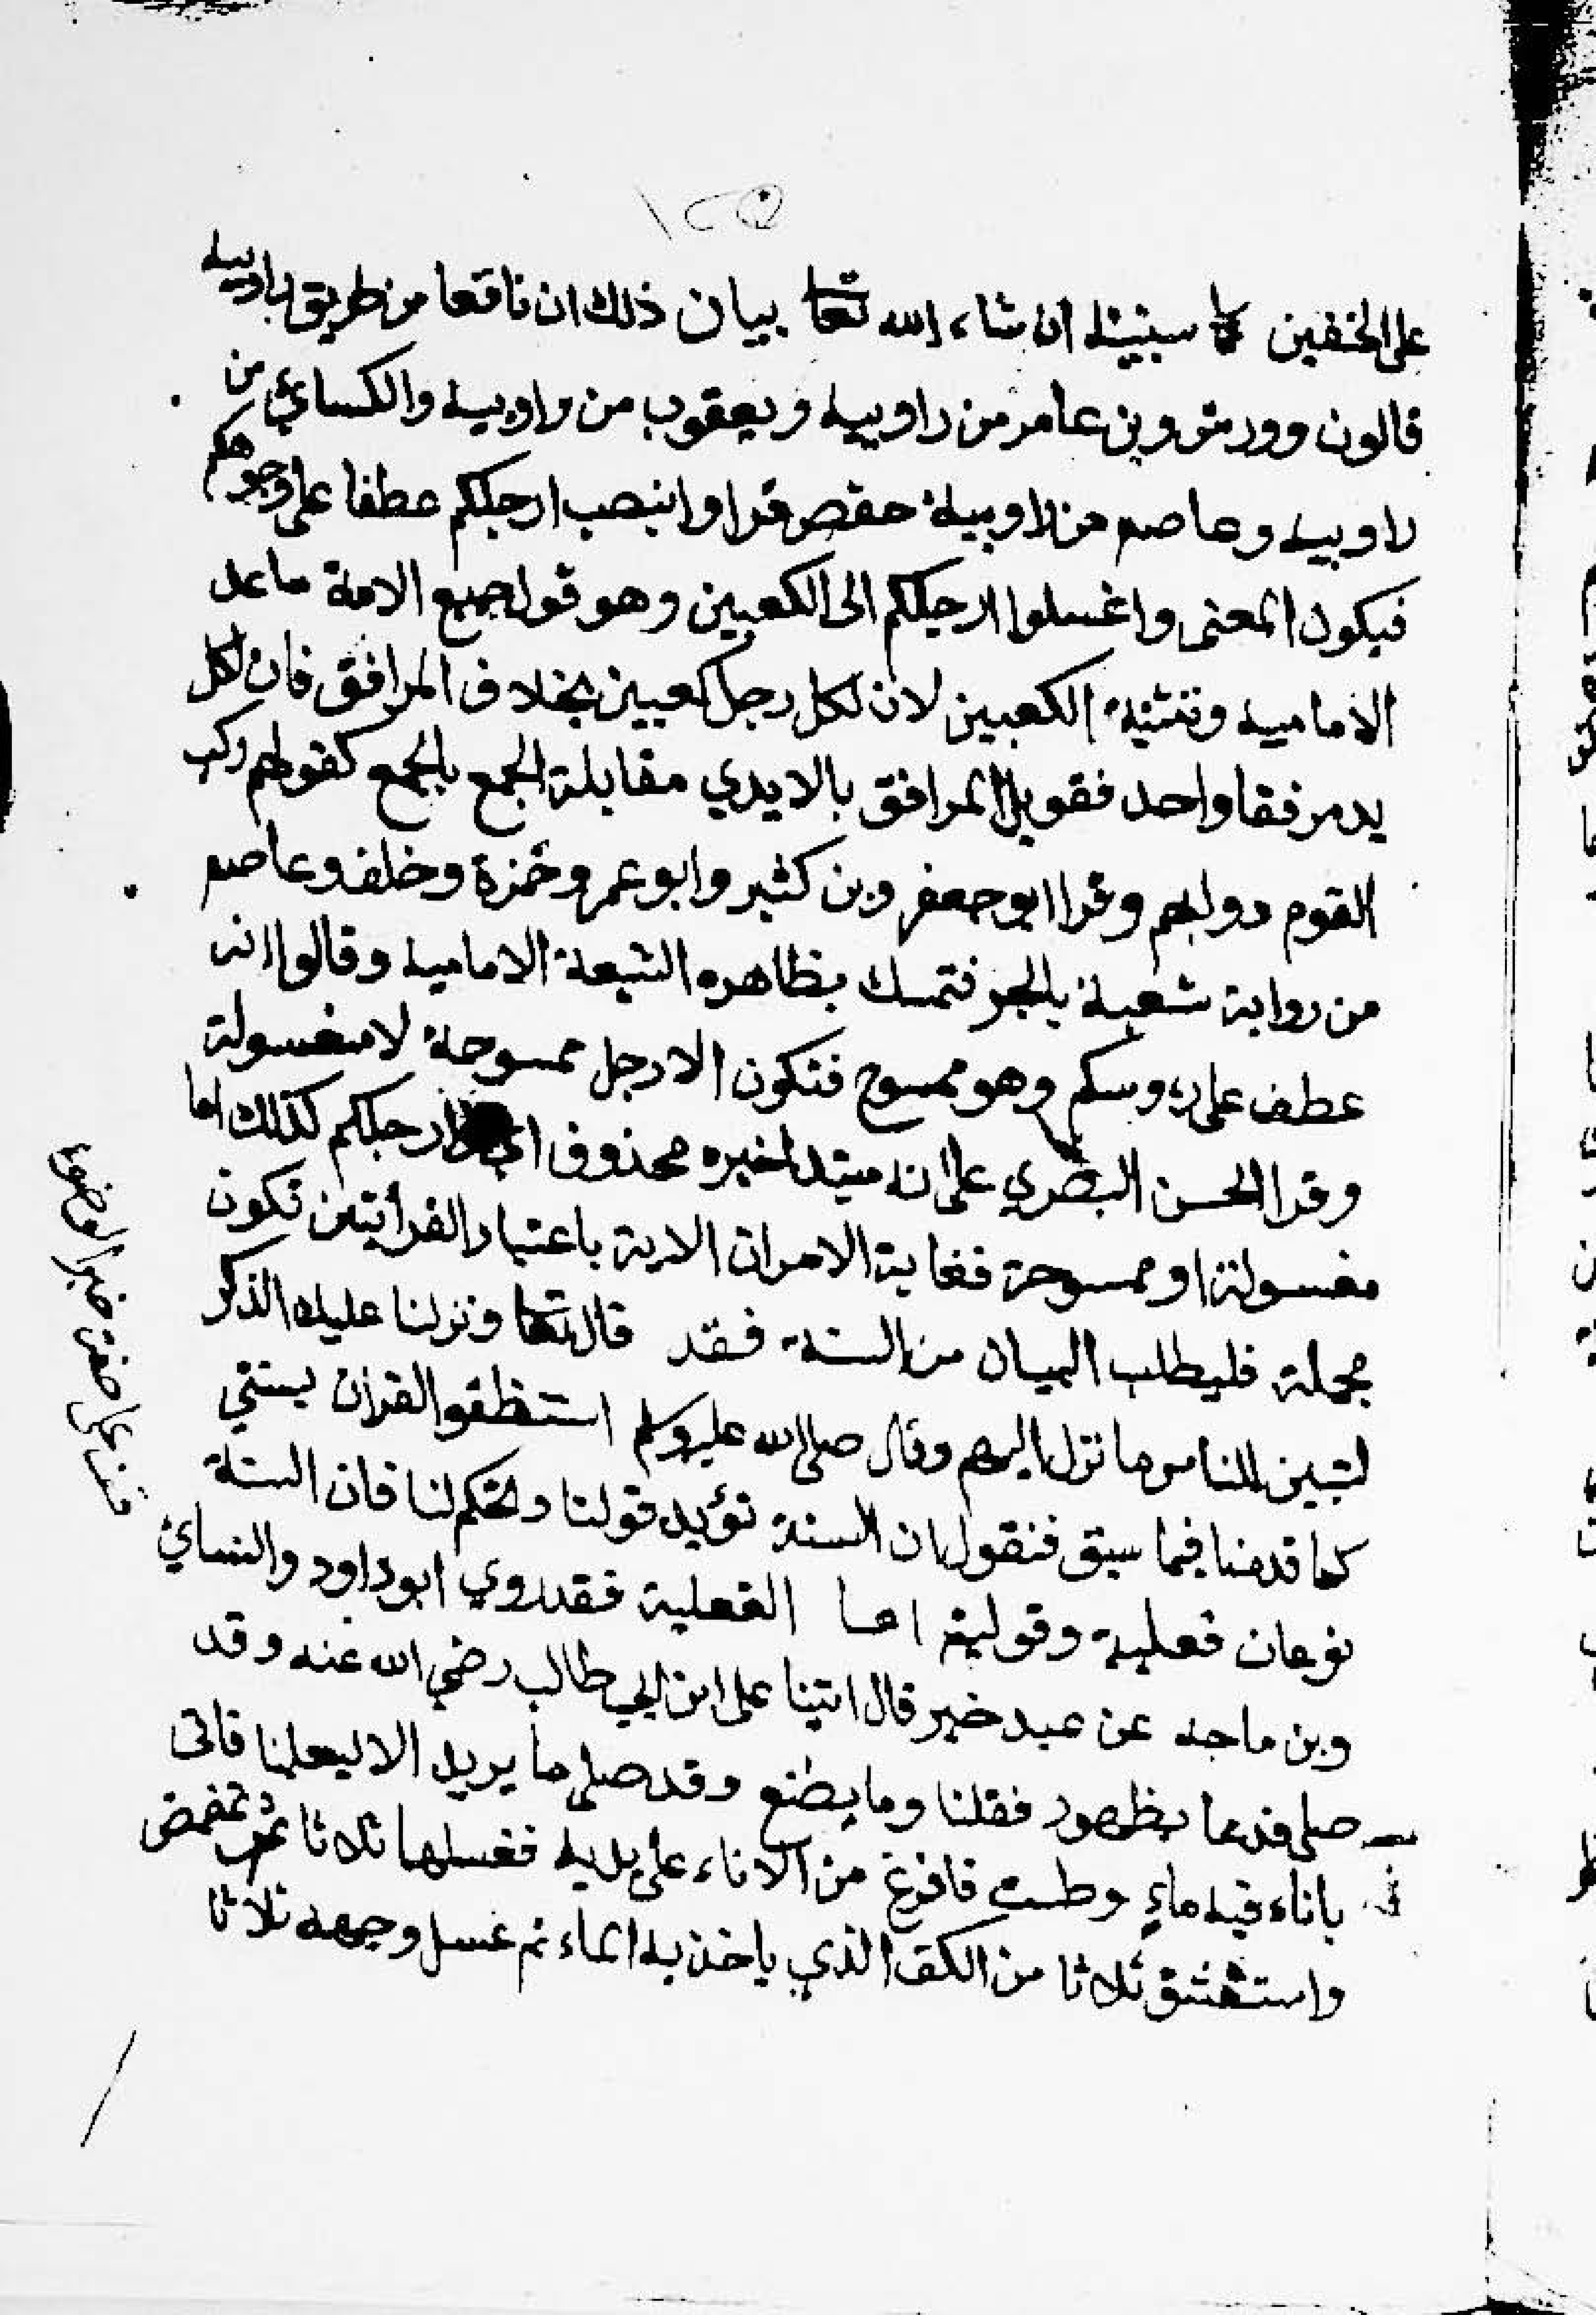 ١٢٥
على الخفين كما سنبينه ان شاء الله تعا بيان ذلك ان نافعا من طريق راوييه
قالون وورش وبن عامر من راوييه ويعقوب من راوييه والكسائي من
راوييه وعاصم من راوييه حفص قراوا بنصب ارجلكم عطفا على وجوهكم
فيكون المعنى واغسلوا ارجلكم الى الكعبين وهو قول جميع الامة ما عدا
الاماميه وتثنية الكعبين لان لكل رجل كعبين بخلاف المرافق فان لكل
يد مرفقا واحد فقوبل المرافق بالايدي مقابلة الجمع بالجمع كقولهم ركب
القوم دوابهم وقرا ابو جعفر وبن كثير وابو عمر وحمزة وخلف وعاصم
من رواية شعبة بالجر فتمسك بظاهره الشيعة الاماميه وقالوا انه
عطف على رءوسكم وهو ممسوح فتكون الارجل ممسوحة لا مغسولة
وقرا الحسن البصري على انه مبتدا خبره محذوف اي وارجلكم كذلك اما
مغسولة او ممسوحة فغاية الامر ان الاية باعتبار القرأتين تكون
مجملة فليطلب البيان من السنة فقد قال تعا ونزلنا عليك الذكر
لتبين للناس ما نزل اليهم وقال صلى الله عليه وسلم استنطقوا القران بسنتي
كما قدمنا فيما سبق فنقول ان السنة تؤيد قولنا وتحكم لنا فان السنة
نوعان فعلية وقولية اما الفعلية فقد روي ابو داود والنساي
وبن ماجه عن عبد خير قال اتينا على ابن ابي طالب رضي الله عنه وقد
صلى فدعا بطهور فقلنا وما يصنع وقد صلى ما يريد الا ليعلمنا فاتى
باناء فيه ماء وطست فافرغ من الاناء على يديه فغسلها ثلاثا ثم تمضمض
واستنشق ثلاثا من الكف الذي ياخذ به الماء ثم غسل وجهه ثلاثا